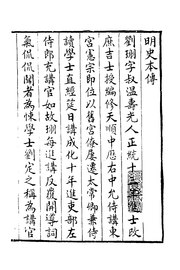 明史本傳
劉珝字叔溫壽光人正統十三年進士改
庶吉士授編修天順中歷右中允侍講東
宮憲宗即位以舊宮僚屢遷太常卿兼侍
讀學士直經筵日講成化十年進吏部左
侍郎充講官如故珝每進講反覆開導詞
氣侃侃聞者為悚學士劉定之稱為講官